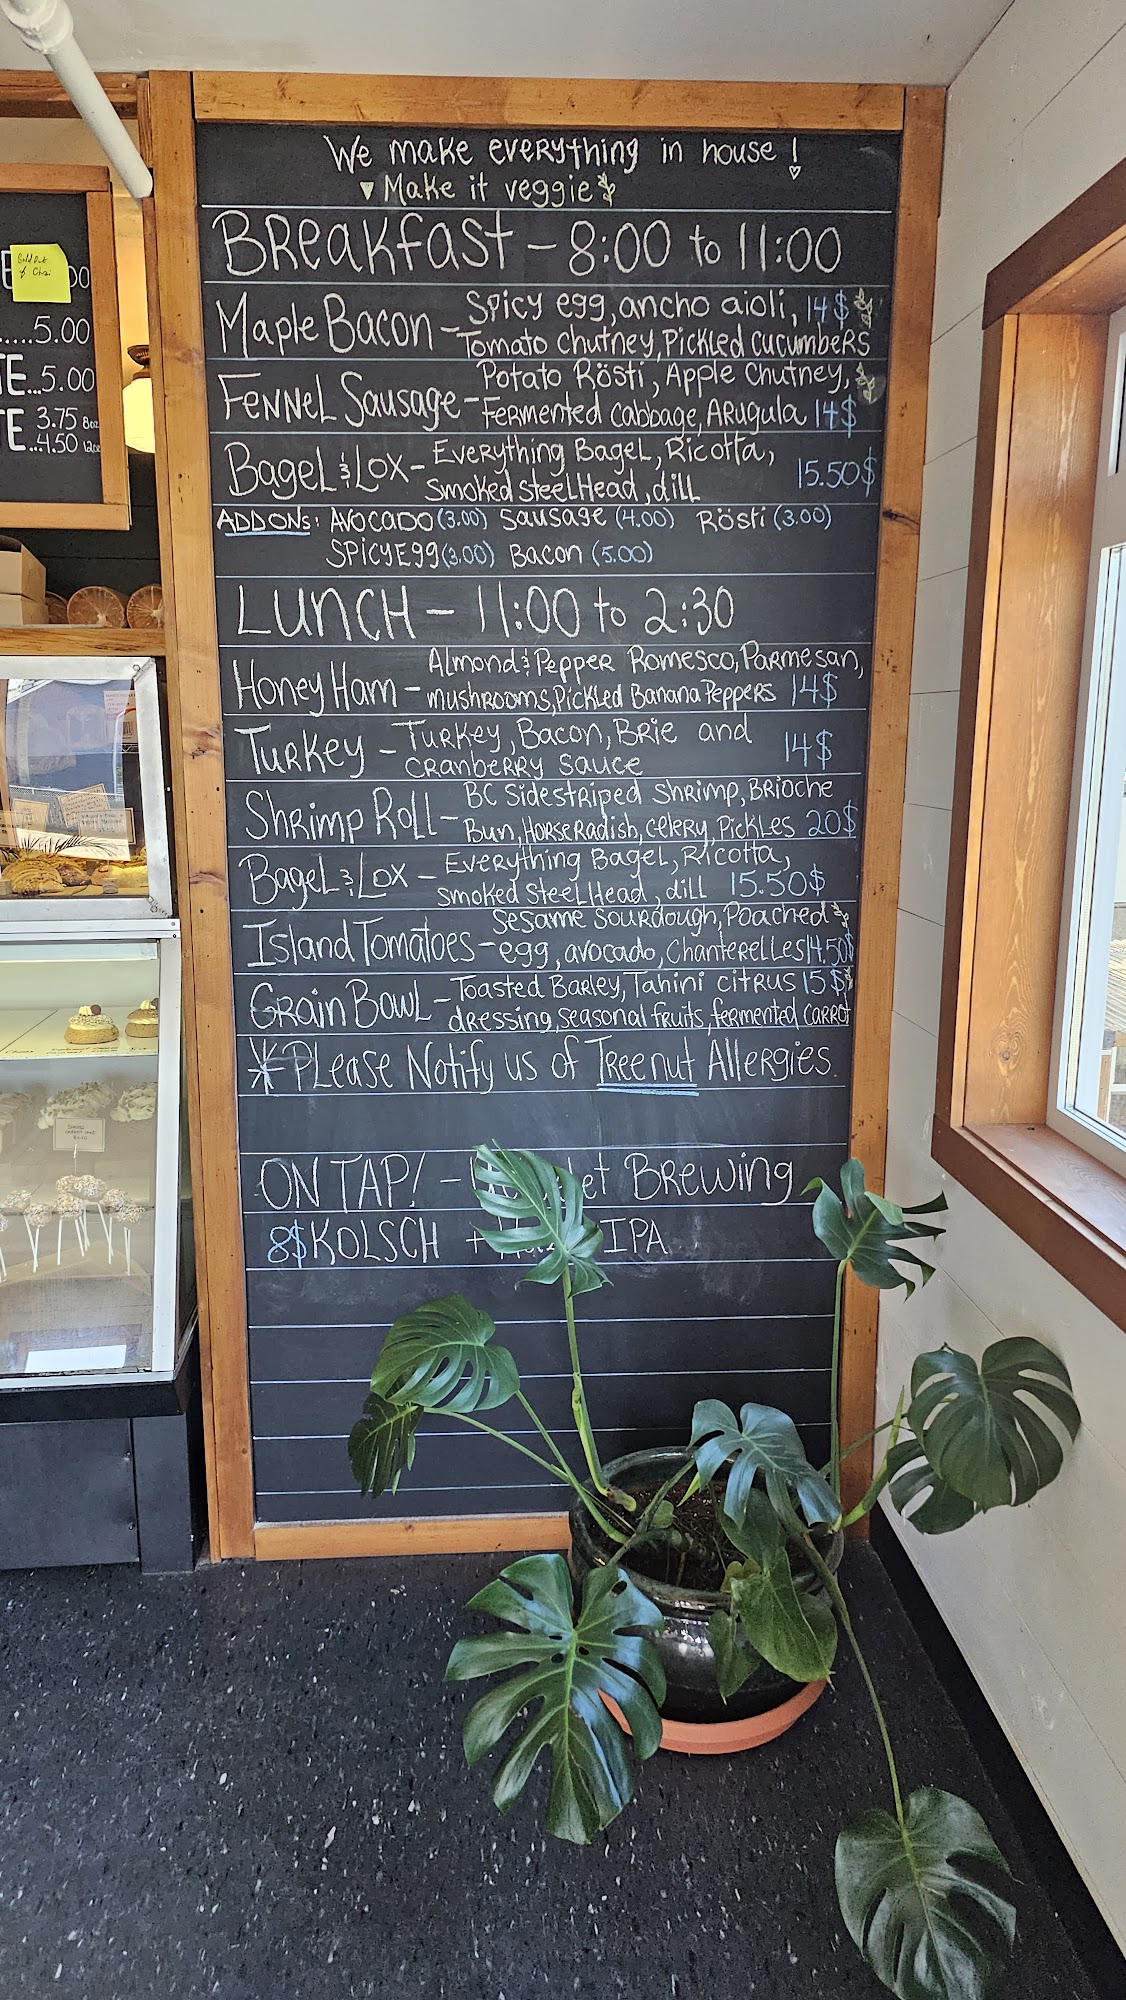 We make everything in house!
Make it veggie
BReakfast - 8:00 to 11:00
Maple Bacon - Spicy egg, ancho aioli, 14$
Tomato chutney, Pickled cucumbeRs
FeNNeL Sausage - Potato Rösti, Apple Chutney,
Fermented Cabbage, ARugula 14$
BageL & Lox - Everything BageL, Ricotta,
smoked SteelHead, dill 15.50$
ADD ONs: AVOCADO (3.00) Sausage (4.00) Rösti (3.00)
SPicy Egg (3.00) Bacon (5.00)
LUNCH - 11:00 to 2:30
Honey Ham - Almond & Pepper Romesco, Parmesan,
mushrooms, Pickled Banana Peppers 14$
TuRKey - TuRKey, Bacon, BRie and
CRanbeRRy Sauce 14$
ShRimp Roll - BC Sidestriped Shrimp, BRioche
Bun, HorseRadish, celery, Pickles 20$
BageL & Lox - EveRything BageL, Ricotta,
smoked SteelHead, dill 15.50$
Island Tomatoes - Sesame Sourdough, Poached
egg, avocado, ChantereLLes 14.50$
GRain BowL - Toasted Barley, Tahini citRus 15$
dressing, seasonal fruits, fermented caRRot
* PLease Notify us of Tree nut Allergies.
ON TAP! - BRewing
8$ KOLSCH + IPA
Sold Out
of Chai
.....5.00
TE...5.00
TE 3.75 8oz
...4.50 12oz